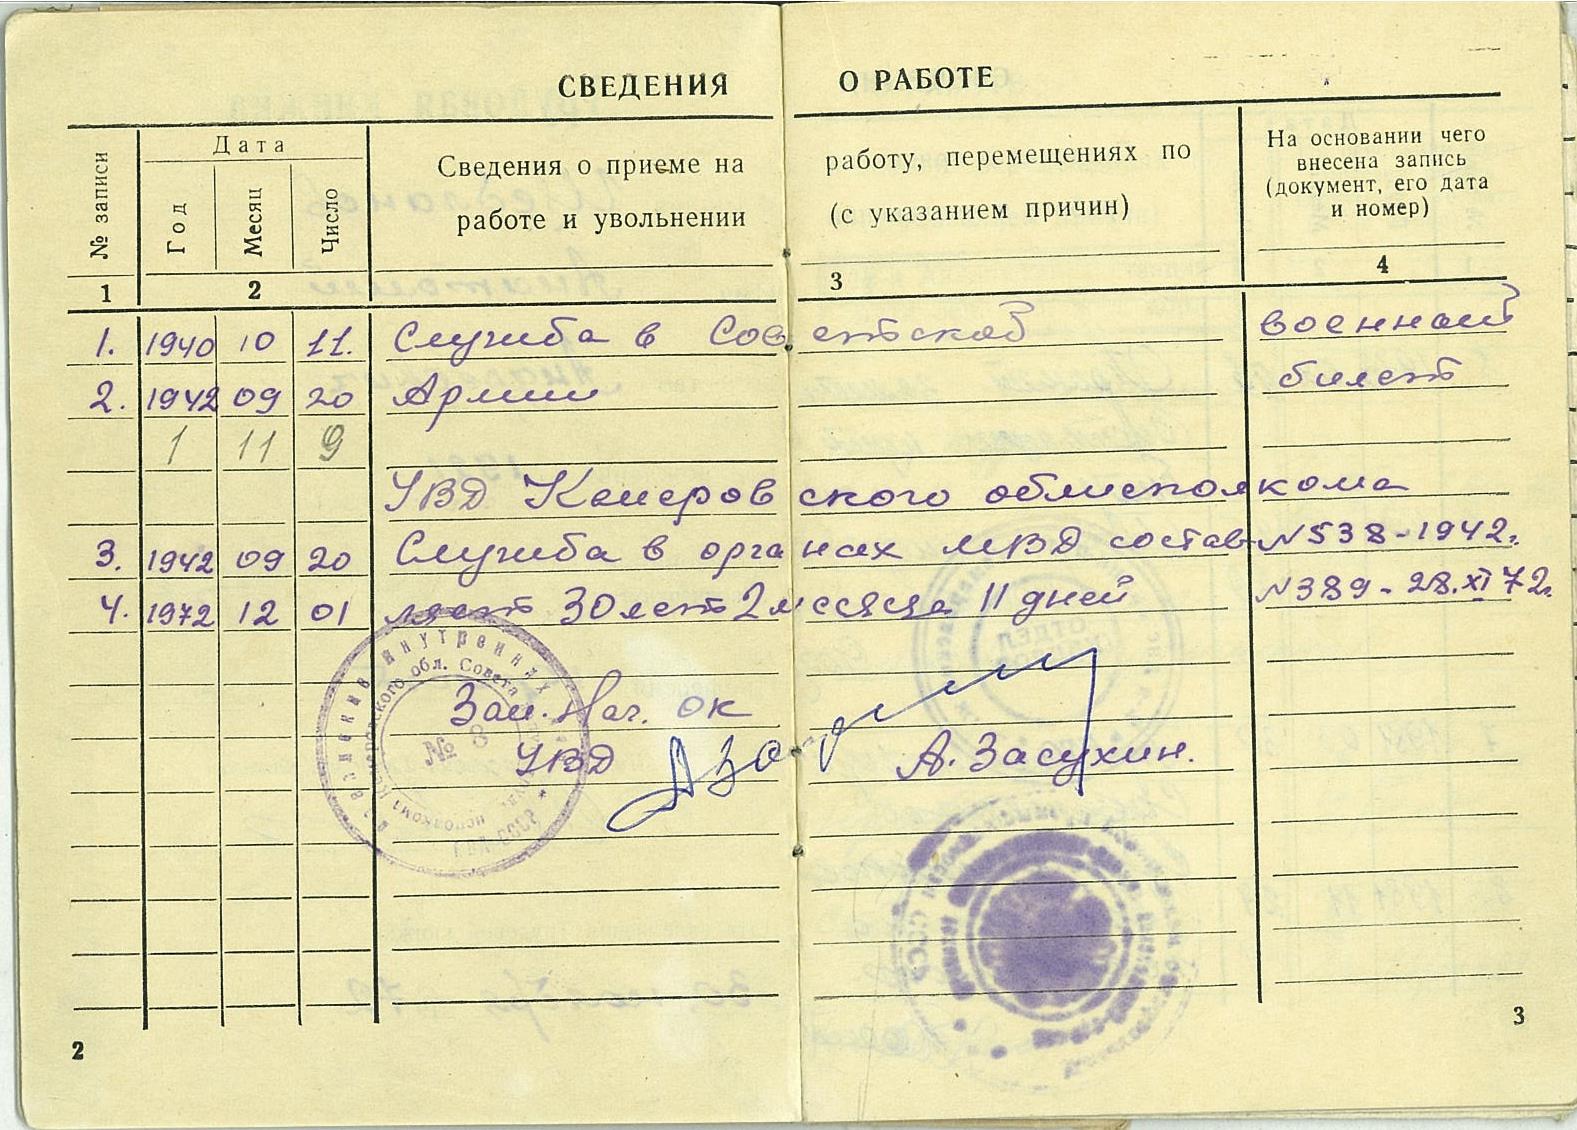 СВЕДЕНИЯ О РАБОТЕ
№ записи
Дата
Год
Месяц
Число
Сведения о приеме на работу, перемещениях по
работе и увольнении (с указанием причин)
На основании чего
внесена запись
(документ, его дата
и номер)
1 2 3 4
1. 1940 10 11. Служба в Советской военный
2. 1942 09 20 Армии билет
1 11 9
УВД Кемеровского облисполкома
3. 1942 09 20 Служба в органах МВД состав- N 538-1942.
4. 1972 12 01 ляет 30 лет 2 месяца 11 дней N 389 - 28.XI 72г.
внутренних
обл. Совета
№ 8
исполкома
Зам. Нач. ОК
УВД А. Засухин.
СССР
2
3